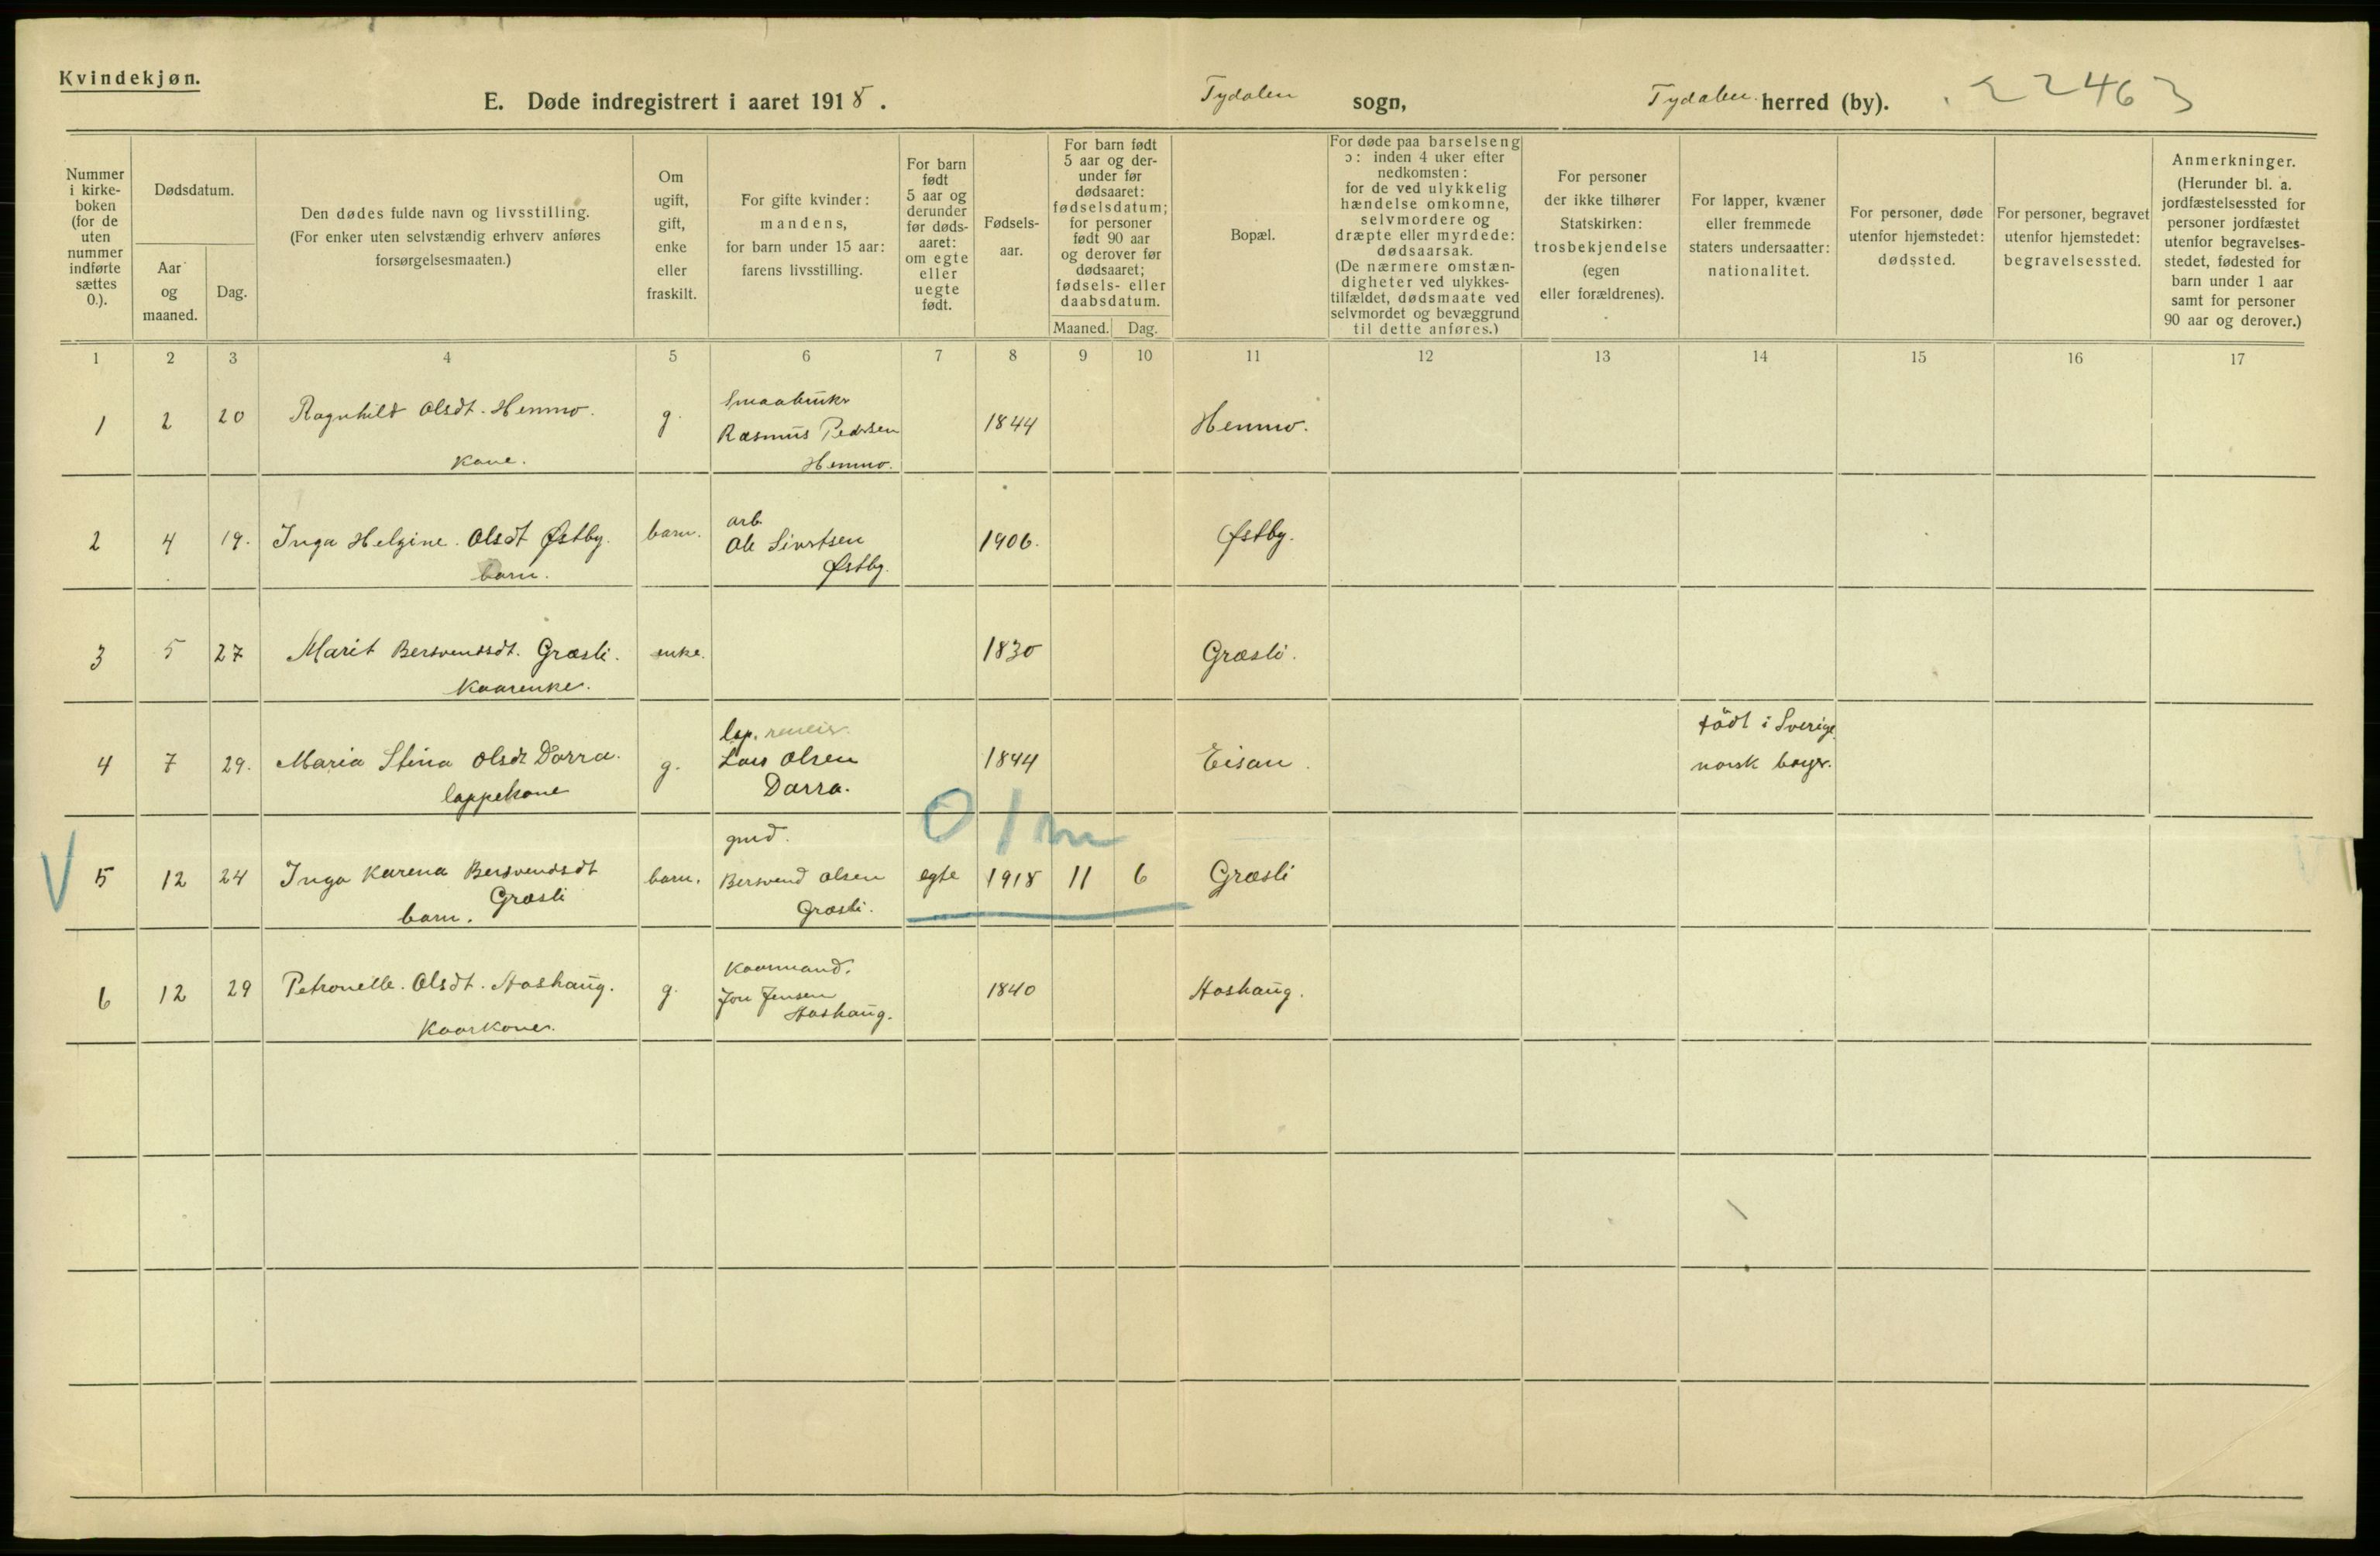 Kvindekjøn.
E. Døde indregistrert i aaret 1918.
Tydalen sogn,
Tydalen herred (by).
22463
Nummer
i kirke-
boken
(for de
uten
nummer
indførte
sættes
0.).
Dødsdatum.
Aar
og
maaned.
Dag.
Den dødes fulde navn og livsstilling.
(For enker uten selvstændig erhverv anføres
forsørgelsesmaaten.)
Om
ugift,
gift,
enke
eller
fraskilt.
For gifte kvinder:
mandens,
for barn under 15 aar:
farens livsstilling.
For barn
født
5 aar og
derunder
før døds-
aaret:
om egte
eller
uegte
født.
Fødsels-
aar.
For barn født
5 aar og der-
under før
dødsaaret:
fødselsdatum;
for personer
født 90 aar
og derover før
dødsaaret;
fødsels- eller
daabsdatum.
Maaned.
Dag.
Bopæl.
For døde paa barselseng
ɔ: inden 4 uker efter
nedkomsten:
for de ved ulykkelig
hændelse omkomne,
selvmordere og
dræpte eller myrdede:
dødsaarsak.
(De nærmere omstæn-
digheter ved ulykkes-
tilfældet, dødsmaate ved
selvmordet og bevæggrund
til dette anføres.)
For personer
der ikke tilhører
Statskirken:
trosbekjendelse
(egen
eller forældrenes).
For lapper, kvæner
eller fremmede
staters undersaatter:
nationalitet.
For personer, døde
utenfor hjemstedet:
dødssted.
For personer, begravet
utenfor hjemstedet:
begravelsessted.
Anmerkninger.
(Herunder bl. a.
jordfæstelsessted for
personer jordfæstet
utenfor begravelses-
stedet, fødested for
barn under 1 aar
samt for personer
90 aar og derover.)
1 2 3 4 5 6 7 8 9 10 11 12 13 14 15 16 17
1 2 20 Ragnhild Olsdt. Hemmo. g. Smaabruker 1844 Hemmo.
Rasmus Pedersen
kone. Hemmo.
2 4 19. Inga Helgine Olsdt Østby. barn. arb. 1906. Østby.
Ole Sivertsen
barn. Østby.
3 5 27 Marit Bersvendsdt. Græsli. enke. 1830 Græsli.
Kaarenke.
4 7 29. Maria Stina Olsdt Dorra. g. lap. 1844 Eisan. født i Sverige.
Lars Olsen norsk borger.
lappekone Dorra.
01m
V 5 12 24 Inga Karena Bersvendsdt barn. gmd. egte 1918 11 6 Græsli
Græsli Bersvend Olsen
barn. Græsli.
6 12 29 Petronelle Olsdt. Aashaug. g. Kaarmand. 1840 Aashaug.
Jon Jensen
Kaarkone. Aashaug.